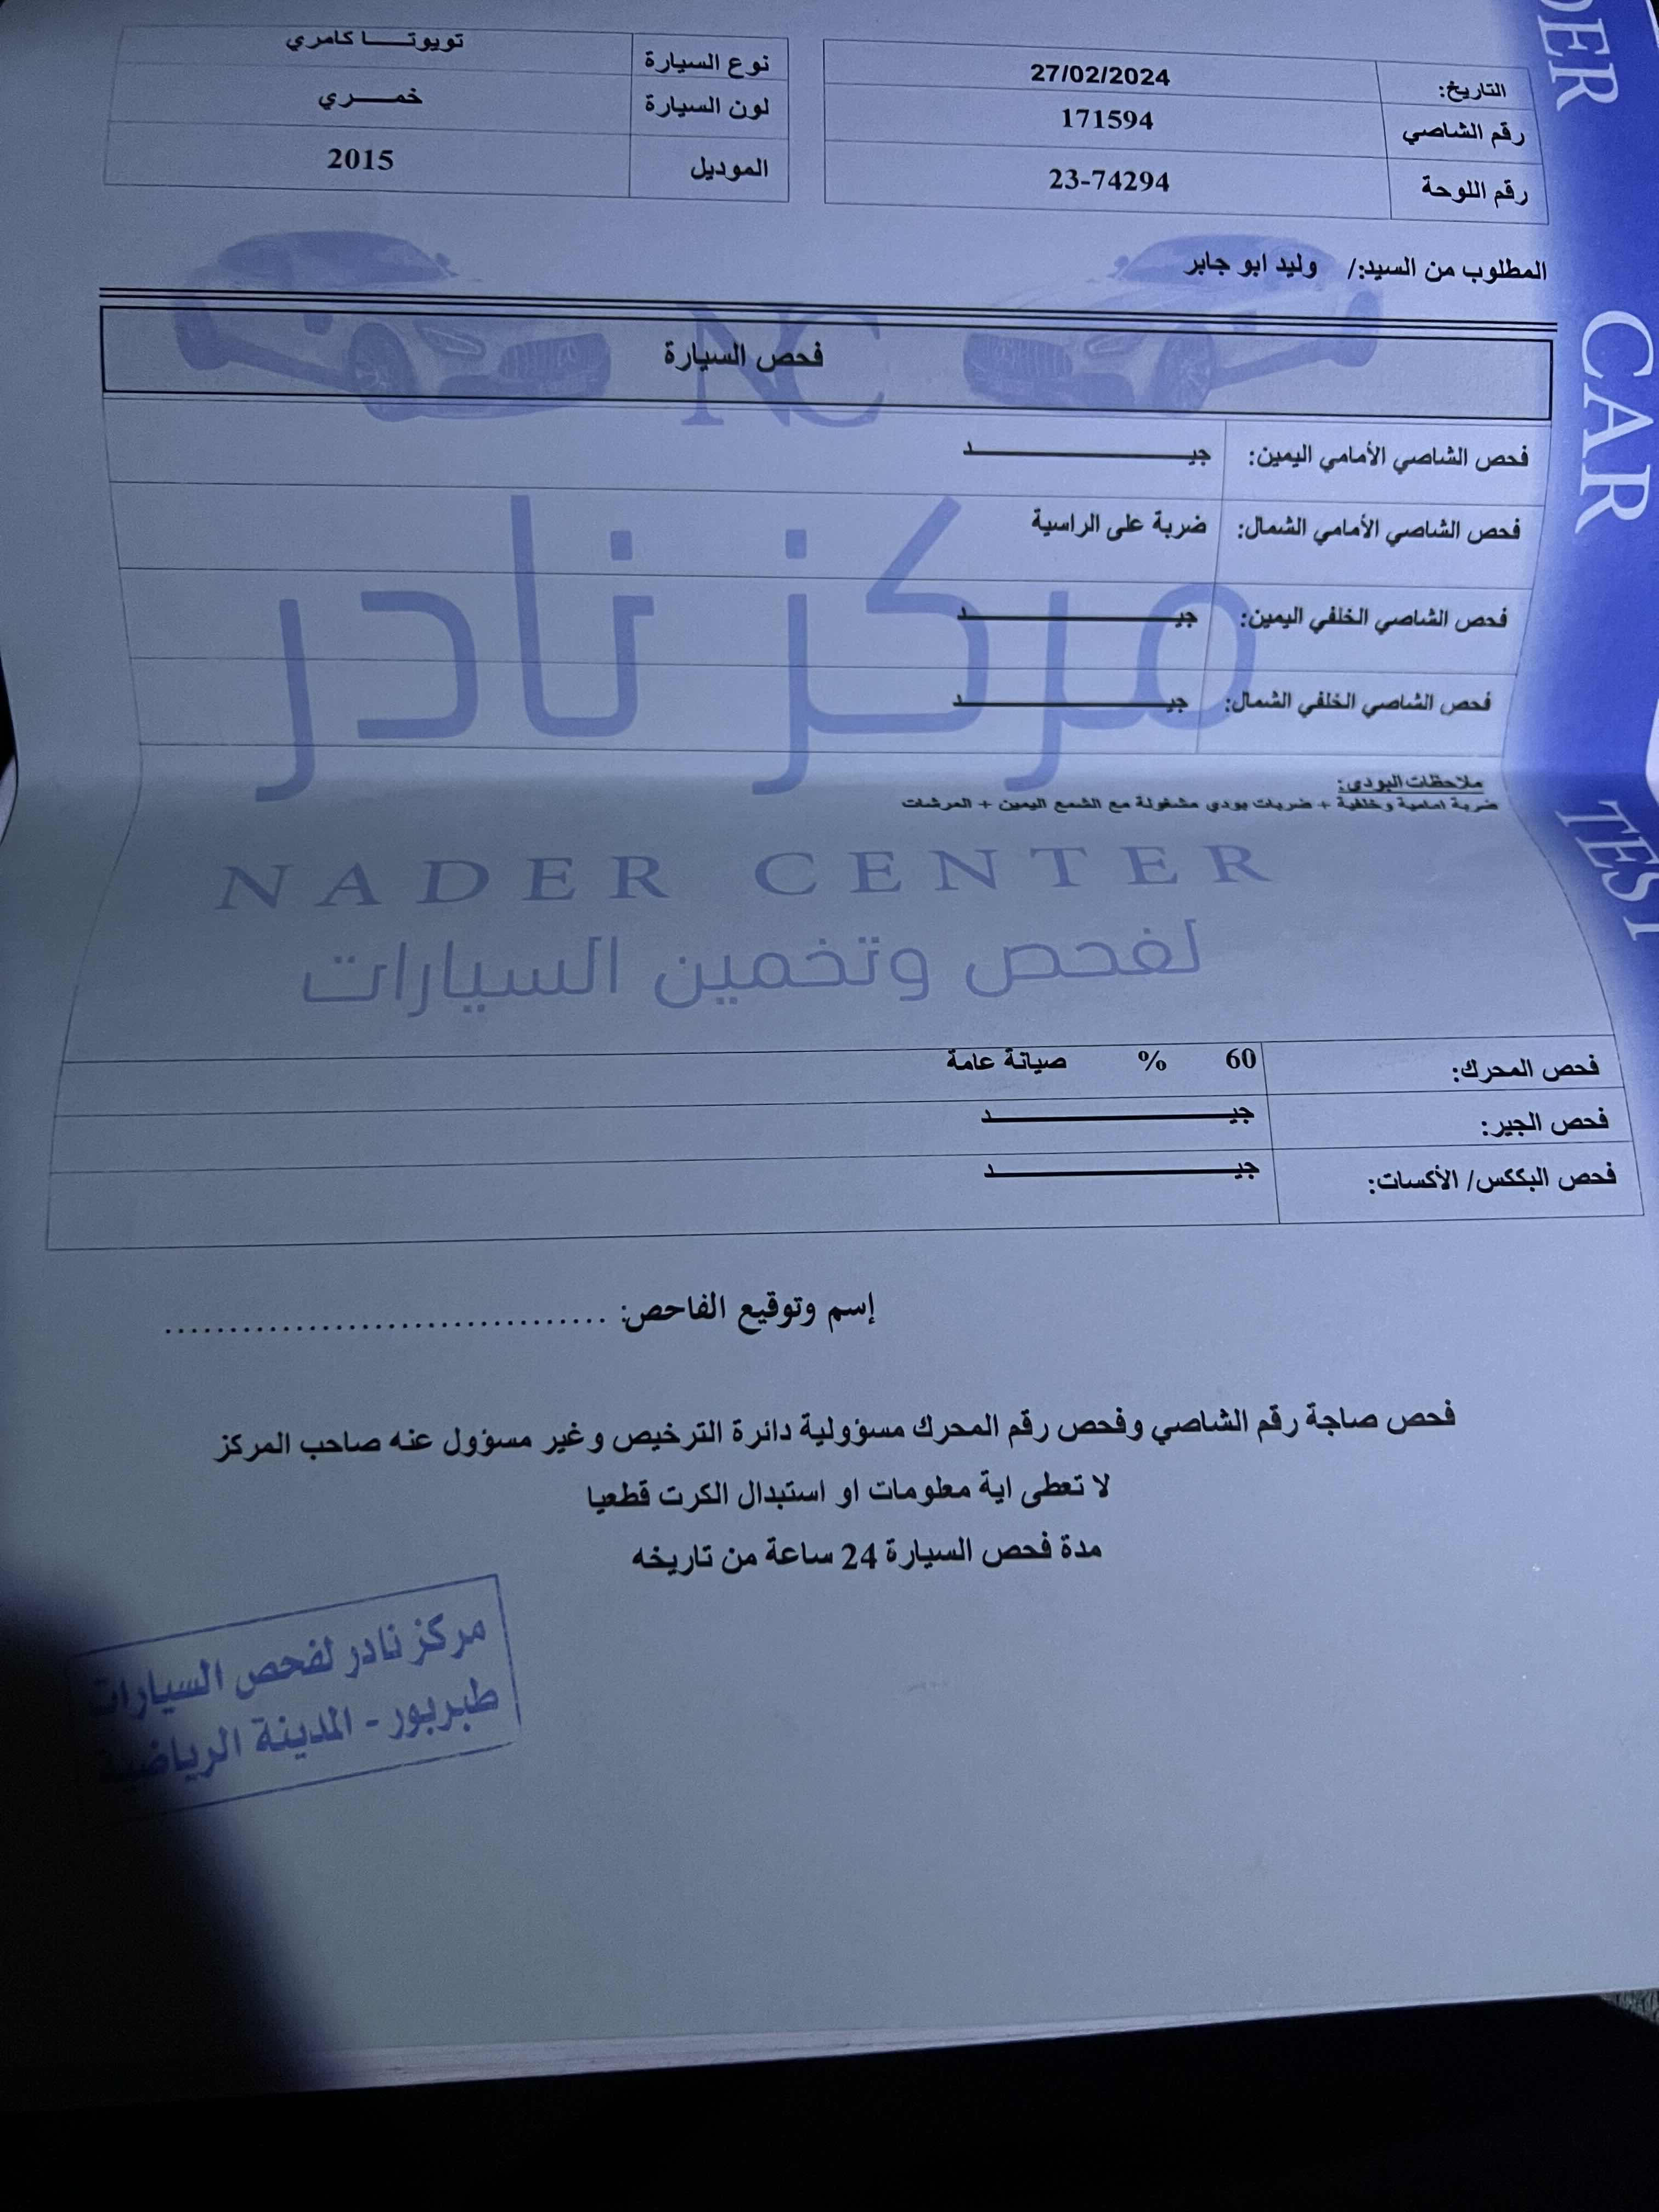 DER CAR TEST
التاريخ: 27/02/2024
رقم الشاصي 171594
رقم اللوحة 23-74294
نوع السيارة تويوتـــــا كامري
لون السيارة خمـــــري
الموديل 2015
المطلوب من السيد:/ وليد ابو جابر
NC
فحص السيارة
فحص الشاصي الأمامي اليمين: جيـــــــــــــــــــــــد
فحص الشاصي الأمامي الشمال: ضربة على الراسية
فحص الشاصي الخلفي اليمين: جيـــــــــــــــــــــــد
فحص الشاصي الخلفي الشمال: جيـــــــــــــــــــــــد
مركز نادر
ملاحظات البودي:
ضربة امامية وخلفية + ضربات بودي مشغولة مع الشمع اليمين + المرشات
NADER CENTER
لفحص وتخمين السيارات
فحص المحرك: 60 % صيانة عامة
فحص الجير: جيـــــــــــــــــــــــد
فحص البككس/ الأكسات: جيـــــــــــــــــــــــد
إسم وتوقيع الفاحص: ..................................
فحص صاجة رقم الشاصي وفحص رقم المحرك مسؤولية دائرة الترخيص وغير مسؤول عنه صاحب المركز
لا تعطى اية معلومات او استبدال الكرت قطعيا
مدة فحص السيارة 24 ساعة من تاريخه
مركز نادر لفحص السيارات
طبربور - المدينة الرياضية